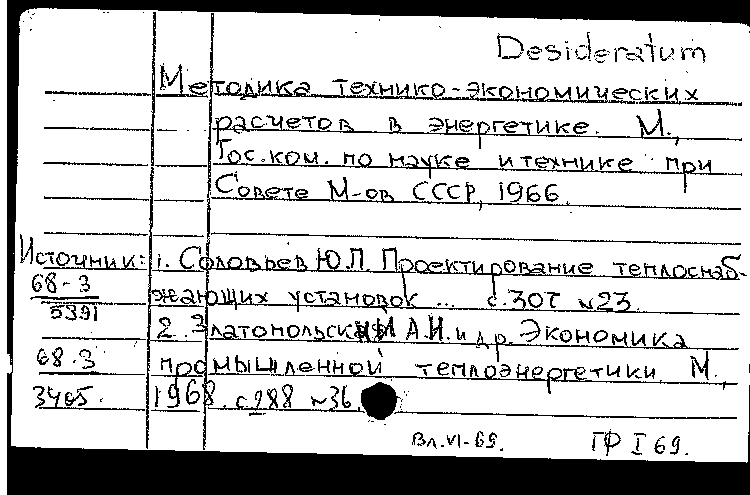 Desideratum
Методика технико-экономических
расчетов в энергетике. М.,
Гос.ком. по науке и технике при
Совете М-ов СССР, 1966.
Источник: 1. Соловьев Ю.П. Проектирование теплоснаб-
68-3 жающих установок ... с.307 №23.
5391
2. Златопольский А.Н. и др. Экономика
68-3 промышленной теплоэнергетики. М.,
3405. 1968. с288 №36.
Вл.VI-69. ГФ I 69.